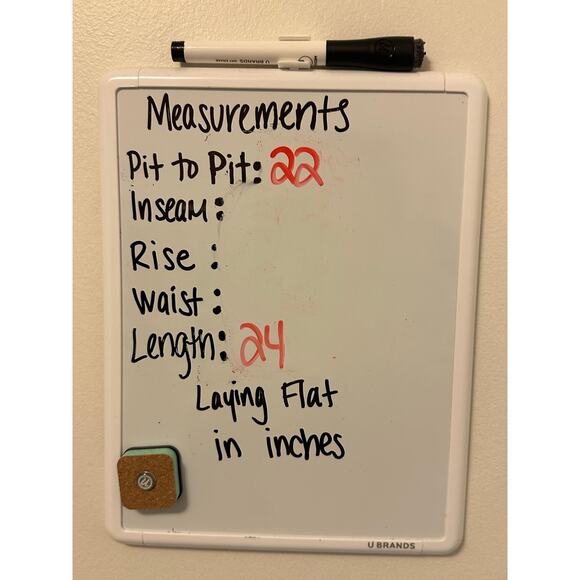 U BRANDS
Measurements
Pit to Pit: 22
Inseam:
Rise:
Waist:
Length: 24
Laying Flat
in inches
U BRANDS